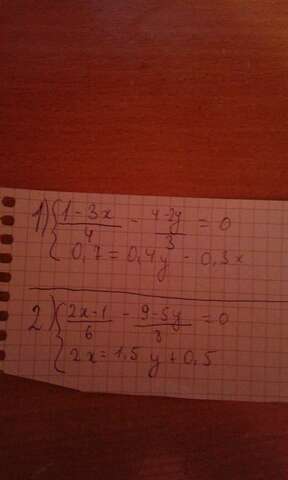 1) { (1-3x)/4 - (4-2y)/3 = 0
0,7 = 0,4y - 0,3x
2) { (2x-1)/6 - (9-5y)/8 = 0
2x = 1,5y + 0,5